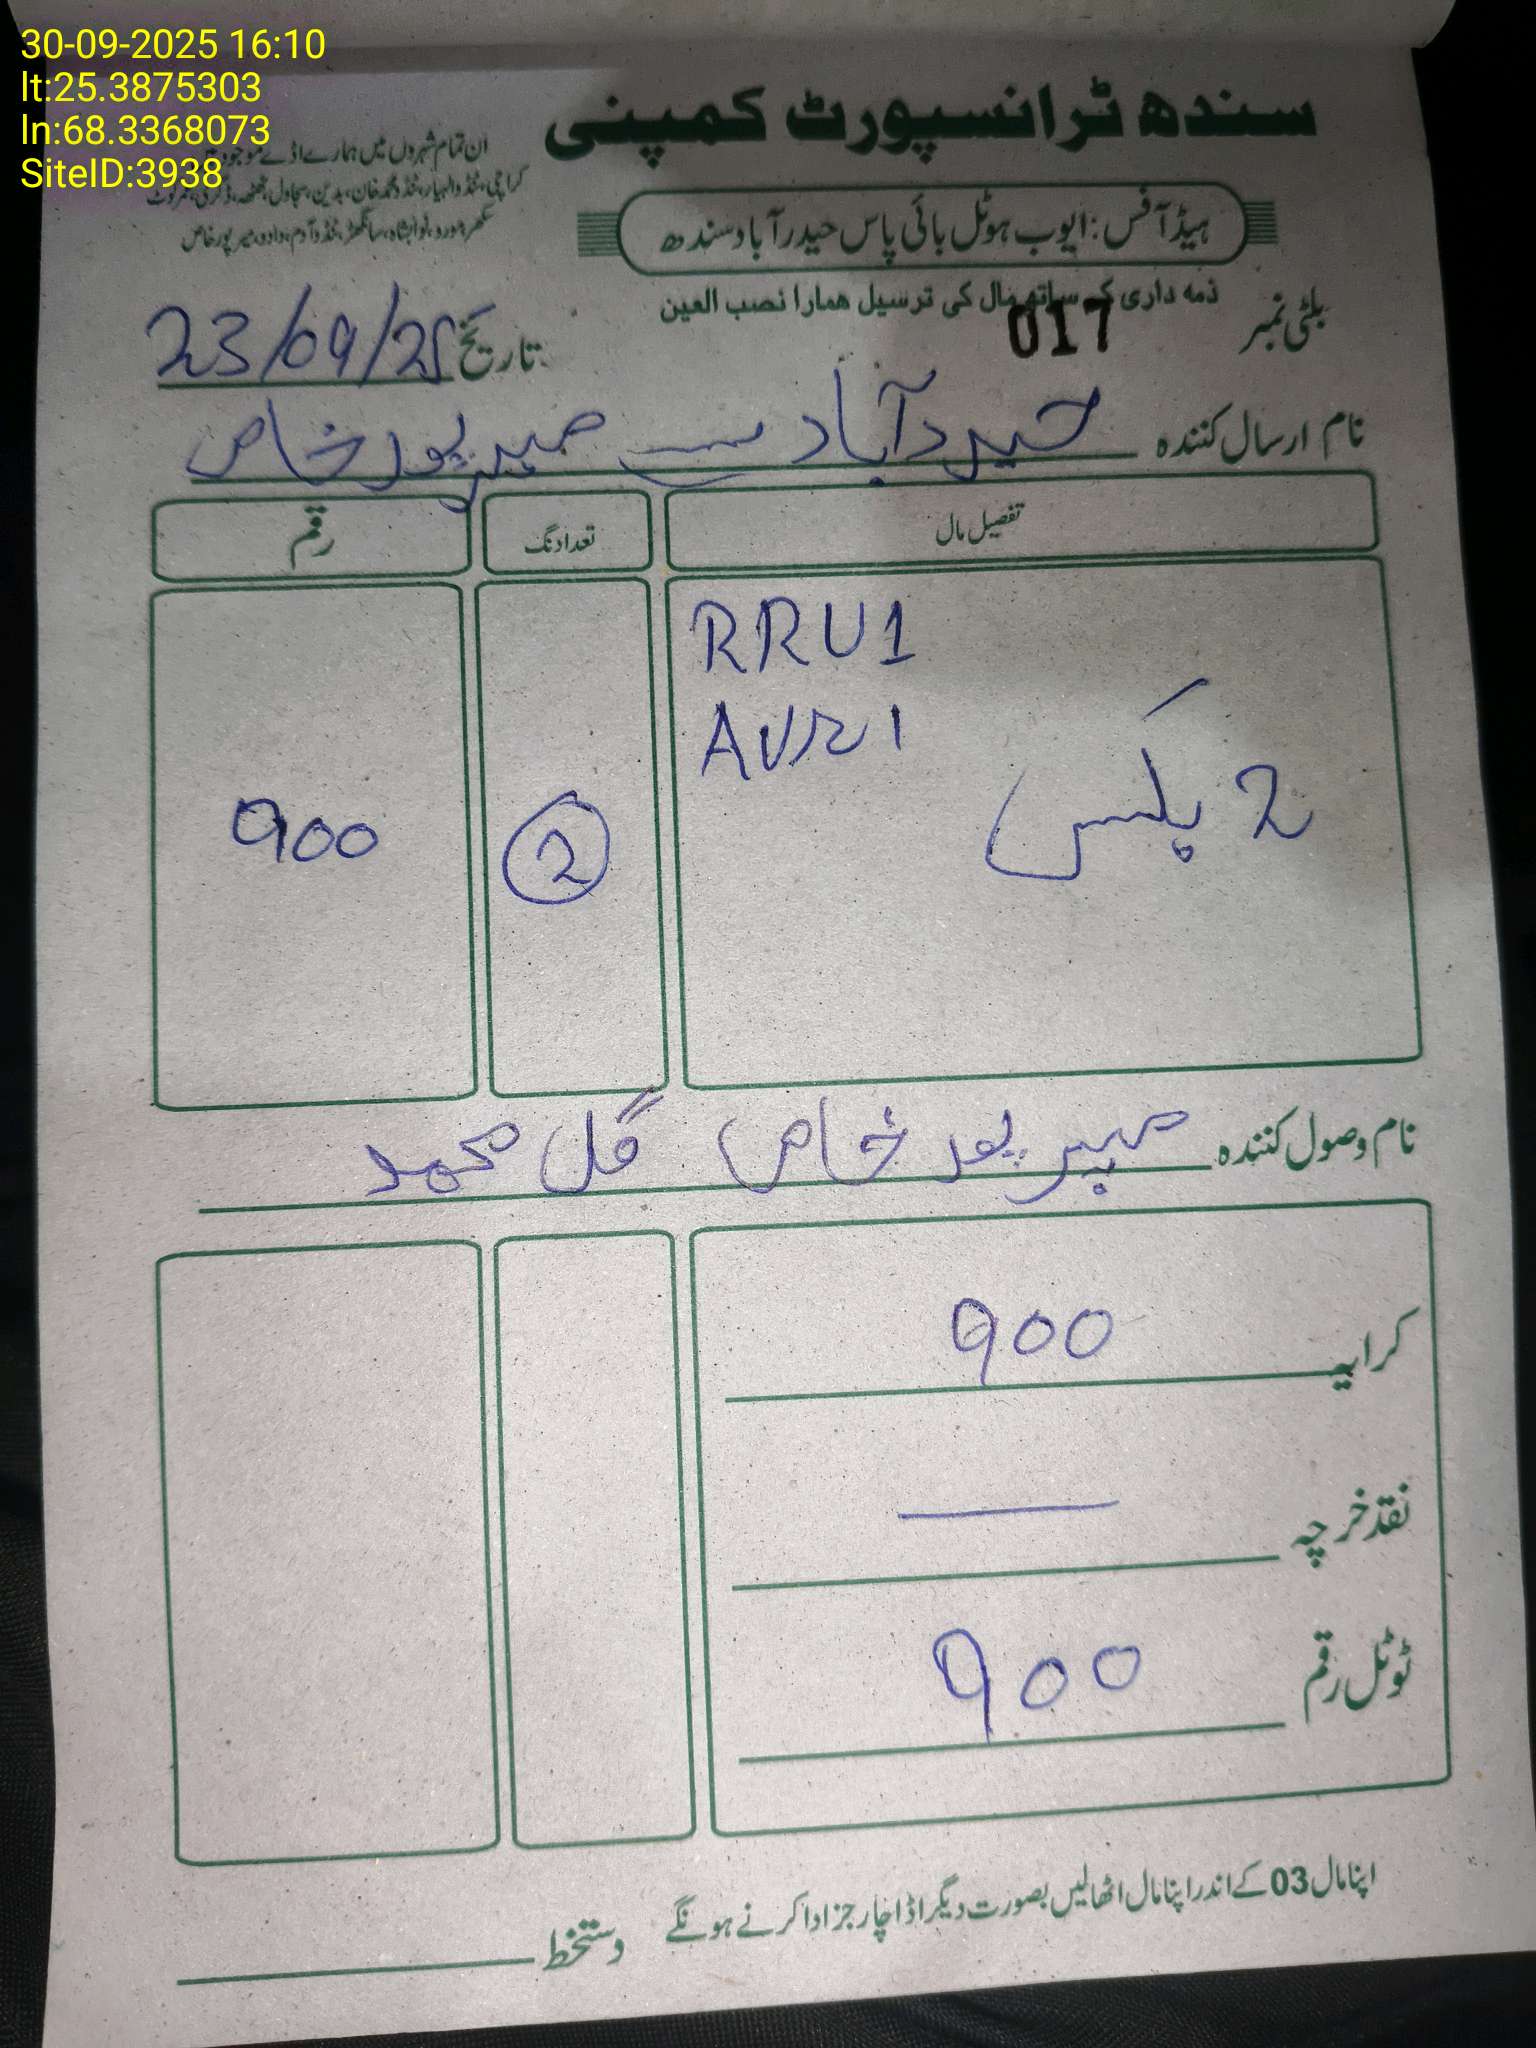 30-09-2025 16:10
lt:25.3875303
ln:68.3368073
SiteID:3938
سندھ ٹرانسپورٹ کمپنی
ان تمام شہروں میں ہمارے اڈے موجود ہیں
کراچی، ٹنڈوالہیار، ٹنڈو محمد خان، بدین، سجاول، ٹھٹھہ، ڈگری، عمرکوٹ
سکھر، مورو، نوابشاہ، سانگھڑ، ٹنڈوآدم، دادو، میرپورخاص
ہیڈ آفس : ایوب ہوٹل بائی پاس حیدرآباد سندھ
ذمہ داری کے ساتھ مال کی ترسیل ھمارا نصب العین
بلٹی نمبر 017
تاریخ 23/09/25
نام ارسال کنندہ حیدرآباد سے میرپور خاص
تفصیل مال تعداد نگ رقم
RRU1
AVR1
2 پکس 2 900
نام وصول کنندہ میرپور خاص گل محمد
کرایہ 900
نقد خرچہ —
ٹوٹل رقم 900
اپنا مال 03 کے اندر اپنا مال اٹھالیں بصورت دیگر اڈا چارجز ادا کرنے ہونگے
دستخط